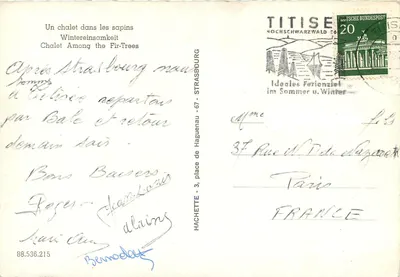 Un chalet dans les sapins
Wintereinsamkeit
Chalet Among the Fir-Trees
Après Strasbourg nous
sommes
à Titisée repartons
par Bale et retour
demain soir.
Bons Baisers
Roger
Alain
Bernadette
88.536.215
HACHETTE - 3, place de Haguenau - 67, STRASBOURG
TITISE
HOCHSCHWARZWALD
Ideales Ferienziel
im Sommer u. Winter
DEUTSCHE BUNDESPOST
20
Mme
37 Rue N D de Nazareth
Paris
FRANCE